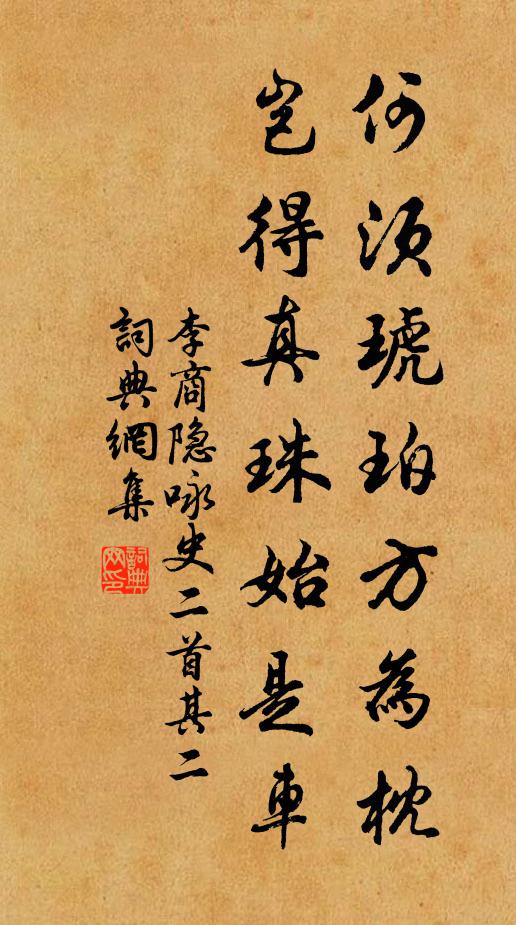 何須琥珀方為枕
豈得真珠始是車
李商隐咏史二首其二
詞典網集
詞典網印